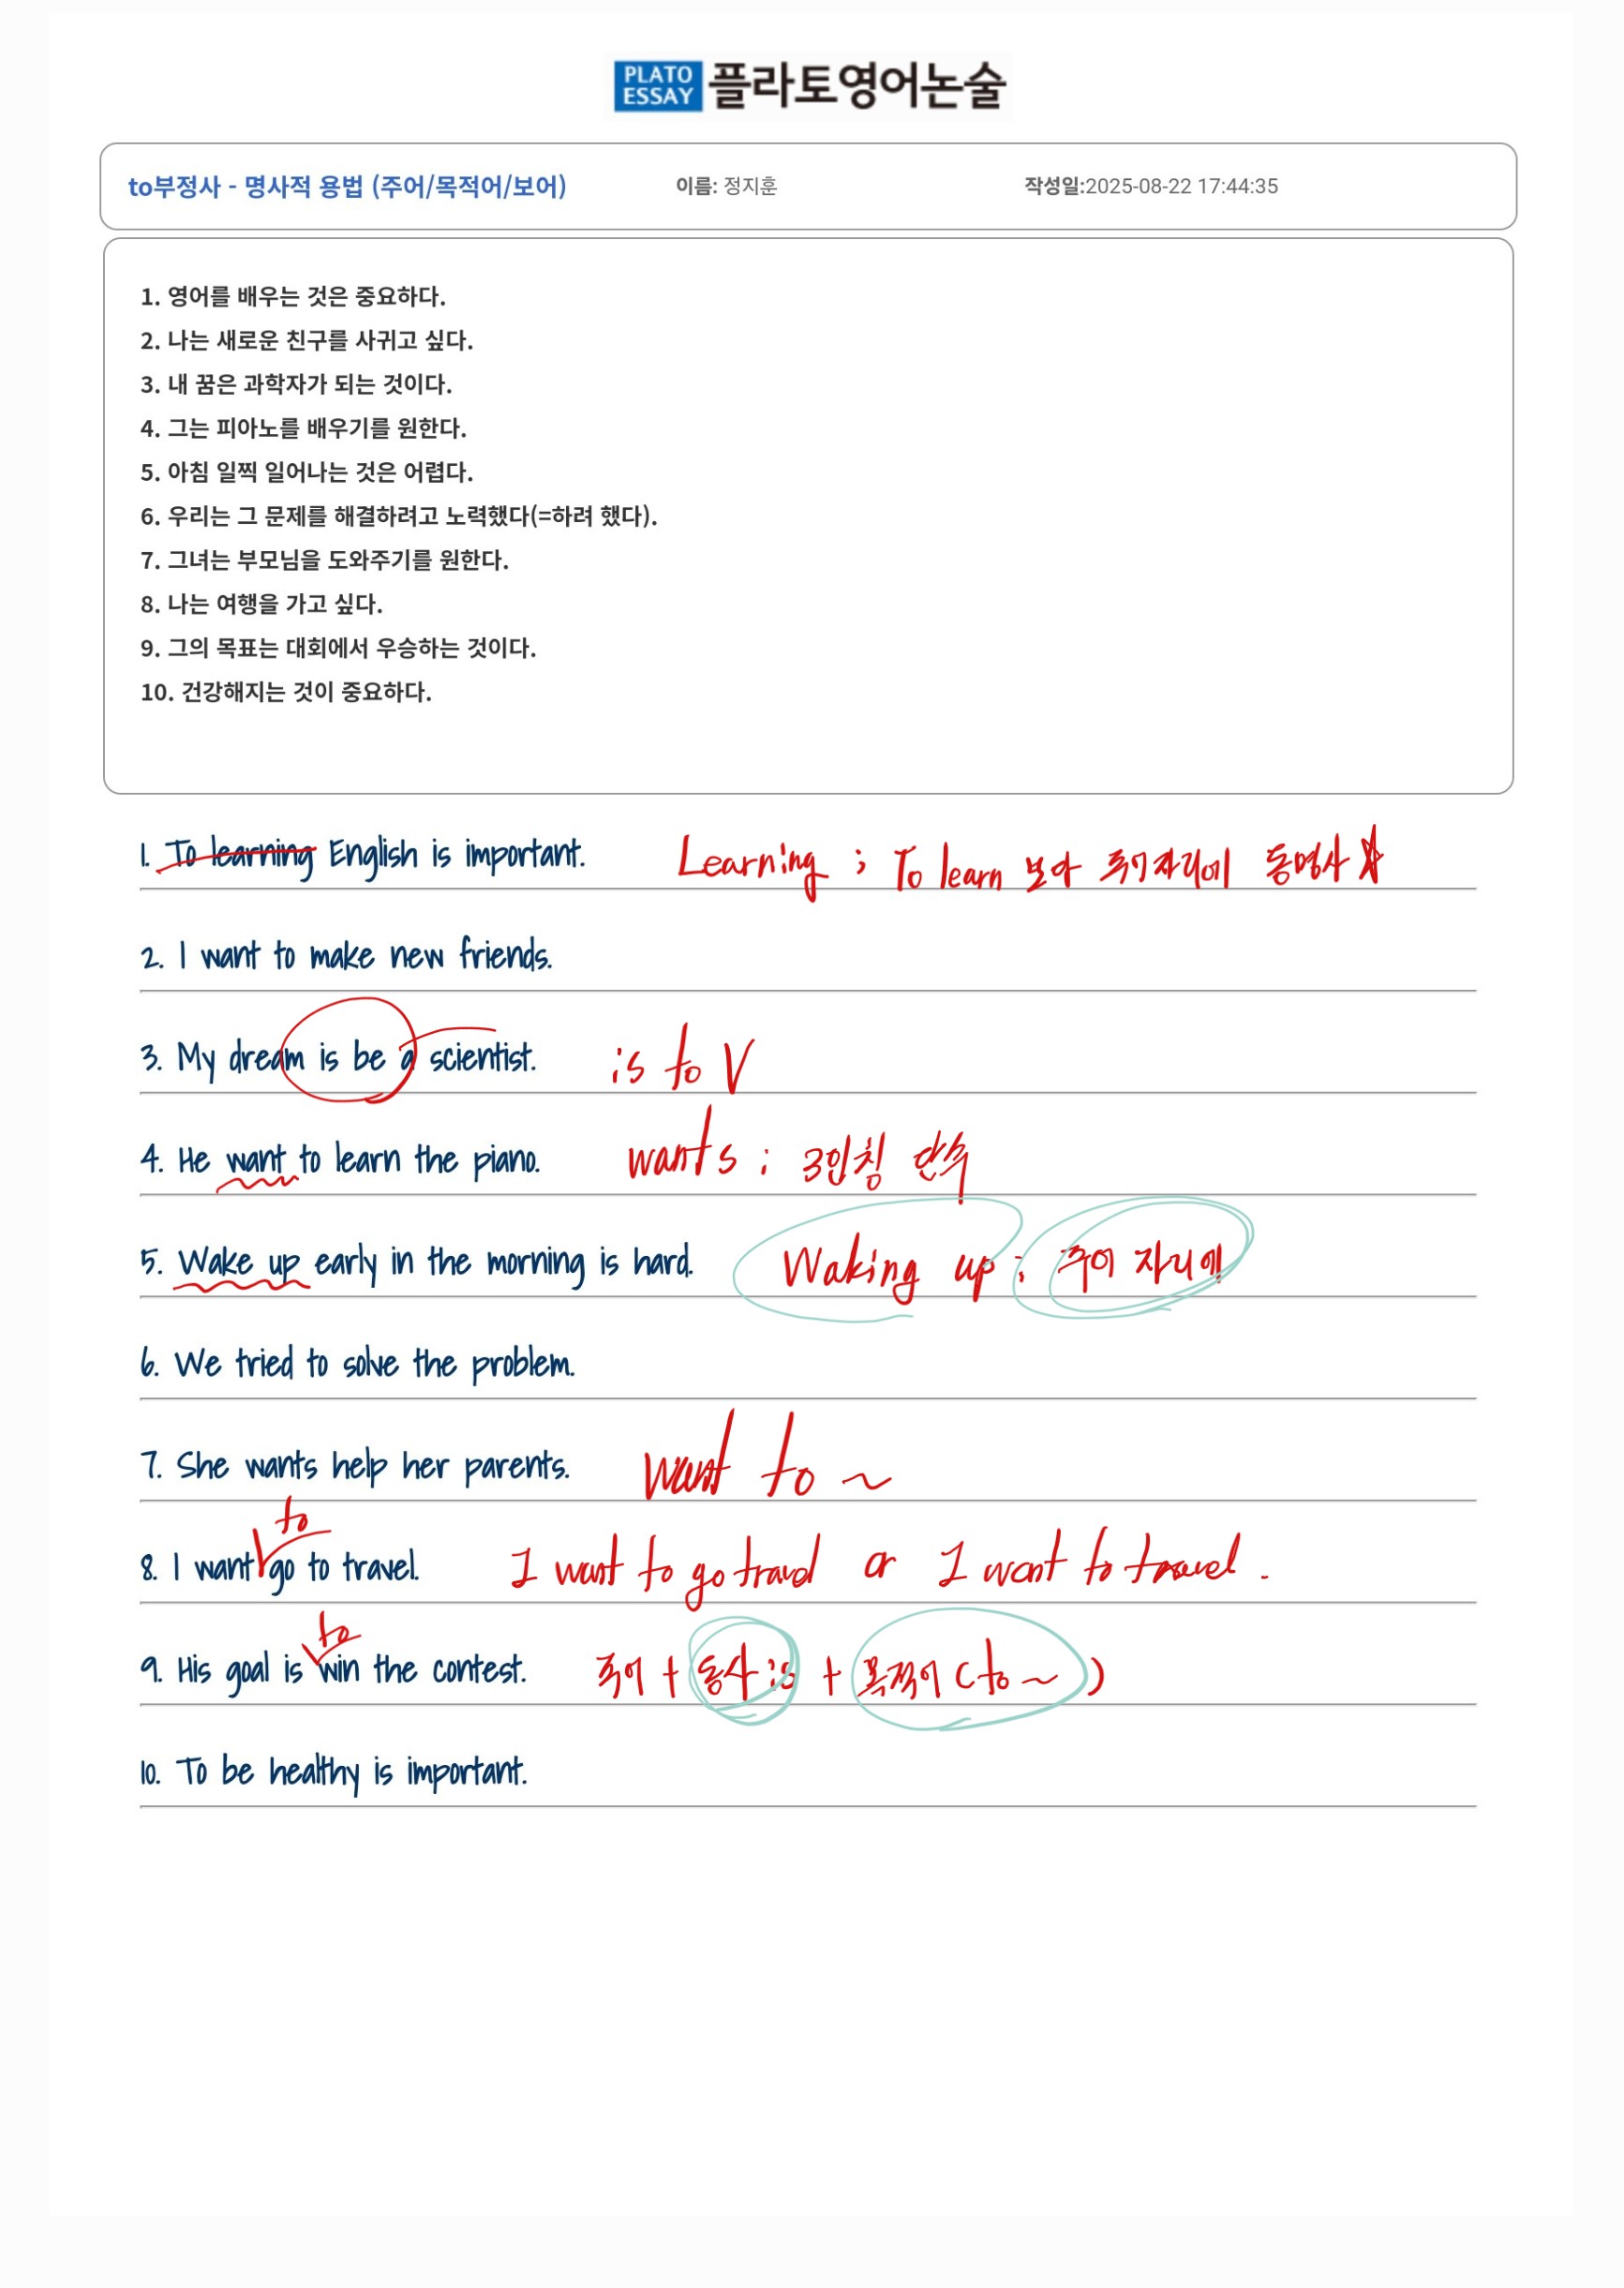 PLATO ESSAY 플라토영어논술
to부정사 - 명사적 용법 (주어/목적어/보어) 이름: 정지훈 작성일:2025-08-22 17:44:35
1. 영어를 배우는 것은 중요하다.
2. 나는 새로운 친구를 사귀고 싶다.
3. 내 꿈은 과학자가 되는 것이다.
4. 그는 피아노를 배우기를 원한다.
5. 아침 일찍 일어나는 것은 어렵다.
6. 우리는 그 문제를 해결하려고 노력했다(=하려 했다).
7. 그녀는 부모님을 도와주기를 원한다.
8. 나는 여행을 가고 싶다.
9. 그의 목표는 대회에서 우승하는 것이다.
10. 건강해지는 것이 중요하다.
1. To learning English is important. Learning ; To learn 보다 주어자리에 동명사
2. I want to make new friends.
3. My dream is be a scientist. is to V
4. He want to learn the piano. wants ; 3인칭 단수
5. Wake up early in the morning is hard. Waking up ; 주어 자리에
6. We tried to solve the problem.
7. She wants help her parents. want to ~
to
8. I want go to travel. I want to go travel or I want to travel.
to
9. His goal is win the contest. 주어 + 동사 is + 목적어 (to ~ )
10. To be healthy is important.